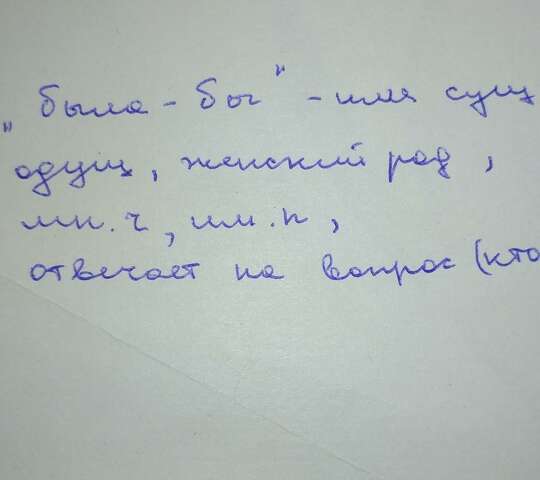 „была - бог" - имя сущ
одущ, женский род,
мн. ч, им. п,
отвечает на вопрос (кто